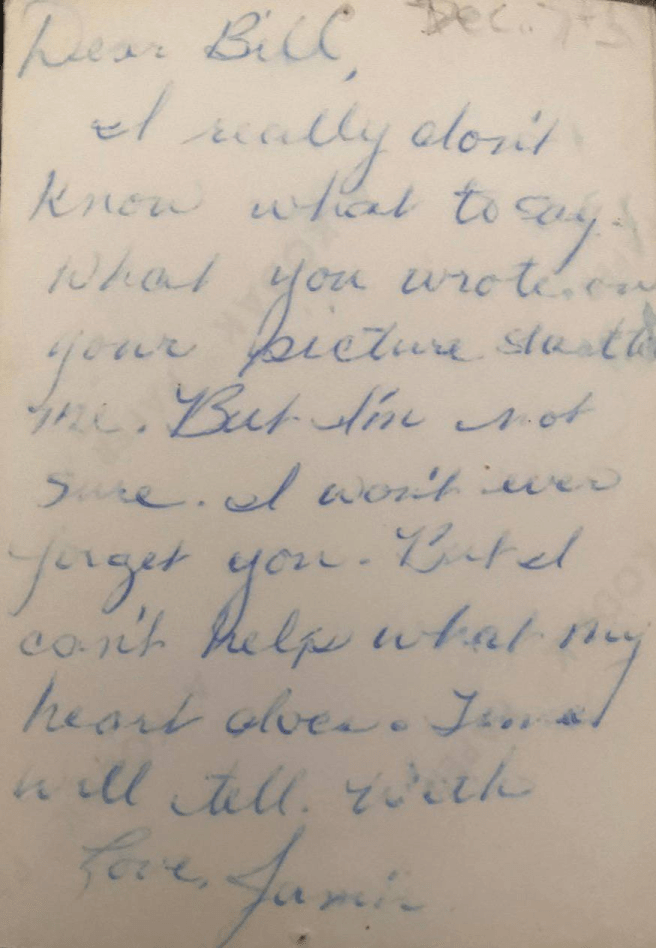 Dec. 75
Dear Bill,
I really don't
know what to say.
What you wrote on
your picture
me. But I'm not
sure. I won't ever
forget you. But I
can't help what my
heart does. Time
will tell. With
Love,
KODAK